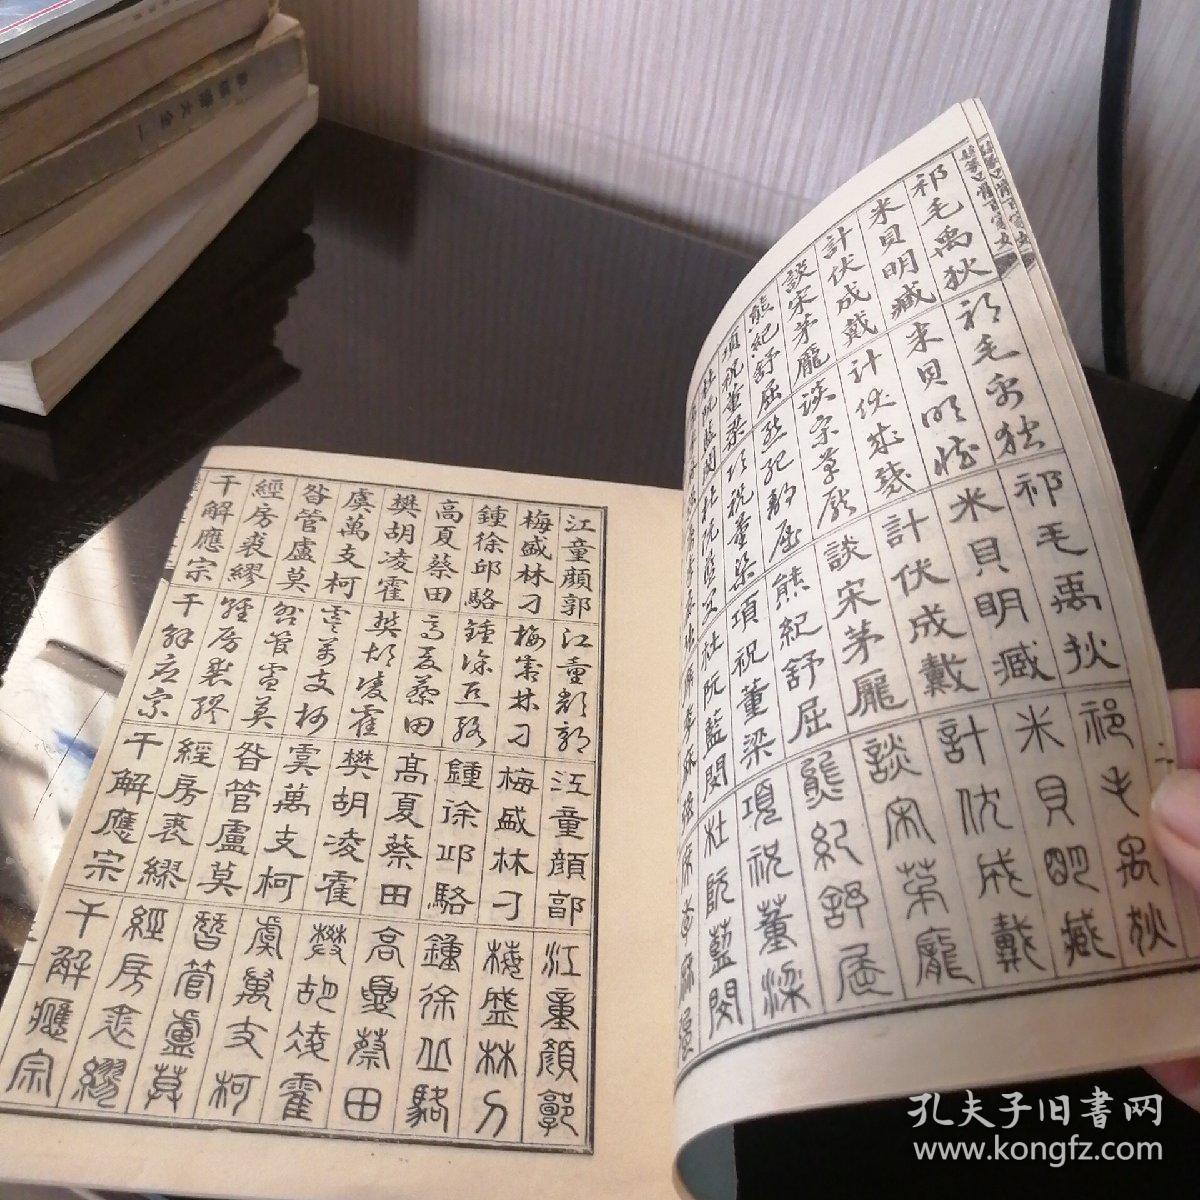 祁毛禹狄
米貝明臧
計伏成戴
談宋茅龐
熊紀舒屈
項祝董梁
杜阮藍閔
祁毛禹狄
米貝明臧
計伏成戴
談宋茅龐
熊紀舒屈
項祝董梁
杜阮藍閔
祁毛禹狄
米貝明臧
計伏成戴
談宋茅龐
熊紀舒屈
項祝董梁
杜阮藍閔
祁毛禹狄
米貝明臧
計伏成戴
談宋茅龐
熊紀舒屈
項祝董梁
杜阮藍閔
江童顏郭
梅盛林刁
鍾徐邱駱
高夏蔡田
樊胡凌霍
虞萬支柯
昝管盧莫
經房裘繆
干解應宗
江童顏郭
梅盛林刁
鍾徐丘駱
高夏蔡田
樊胡凌霍
虞萬支柯
昝管盧莫
經房裘繆
干解應宗
江童顏郭
梅盛林刁
鍾徐邱駱
高夏蔡田
樊胡凌霍
虞萬支柯
昝管盧莫
經房裘繆
干解應宗
江童顏郭
梅盛林刁
鍾徐丘駱
高夏蔡田
樊胡凌霍
虞萬支柯
昝管盧莫
經房裘繆
干解應宗
孔夫子旧書网
www.kongfz.com